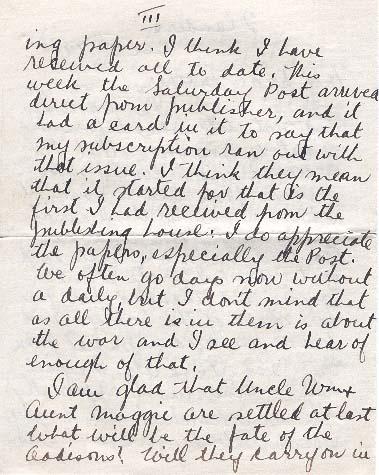 III
ing paper. I think I have
received all to date. This
week the Saturday Post arrived
direct from publisher, and it
had a card in it to say that
my subscription ran out with
that issue. I think they mean
that it started for that is the
first I had received from the
publishing house. I do appreciate
the papers, especially the Post.
We often go days now without
a daily, but I don't mind that
as all there is in them is about
the war and I see and hear of
enough of that.
I am glad that Uncle
Aunt Maggie are settled at last
What will be the fate of the
Will they carry on in